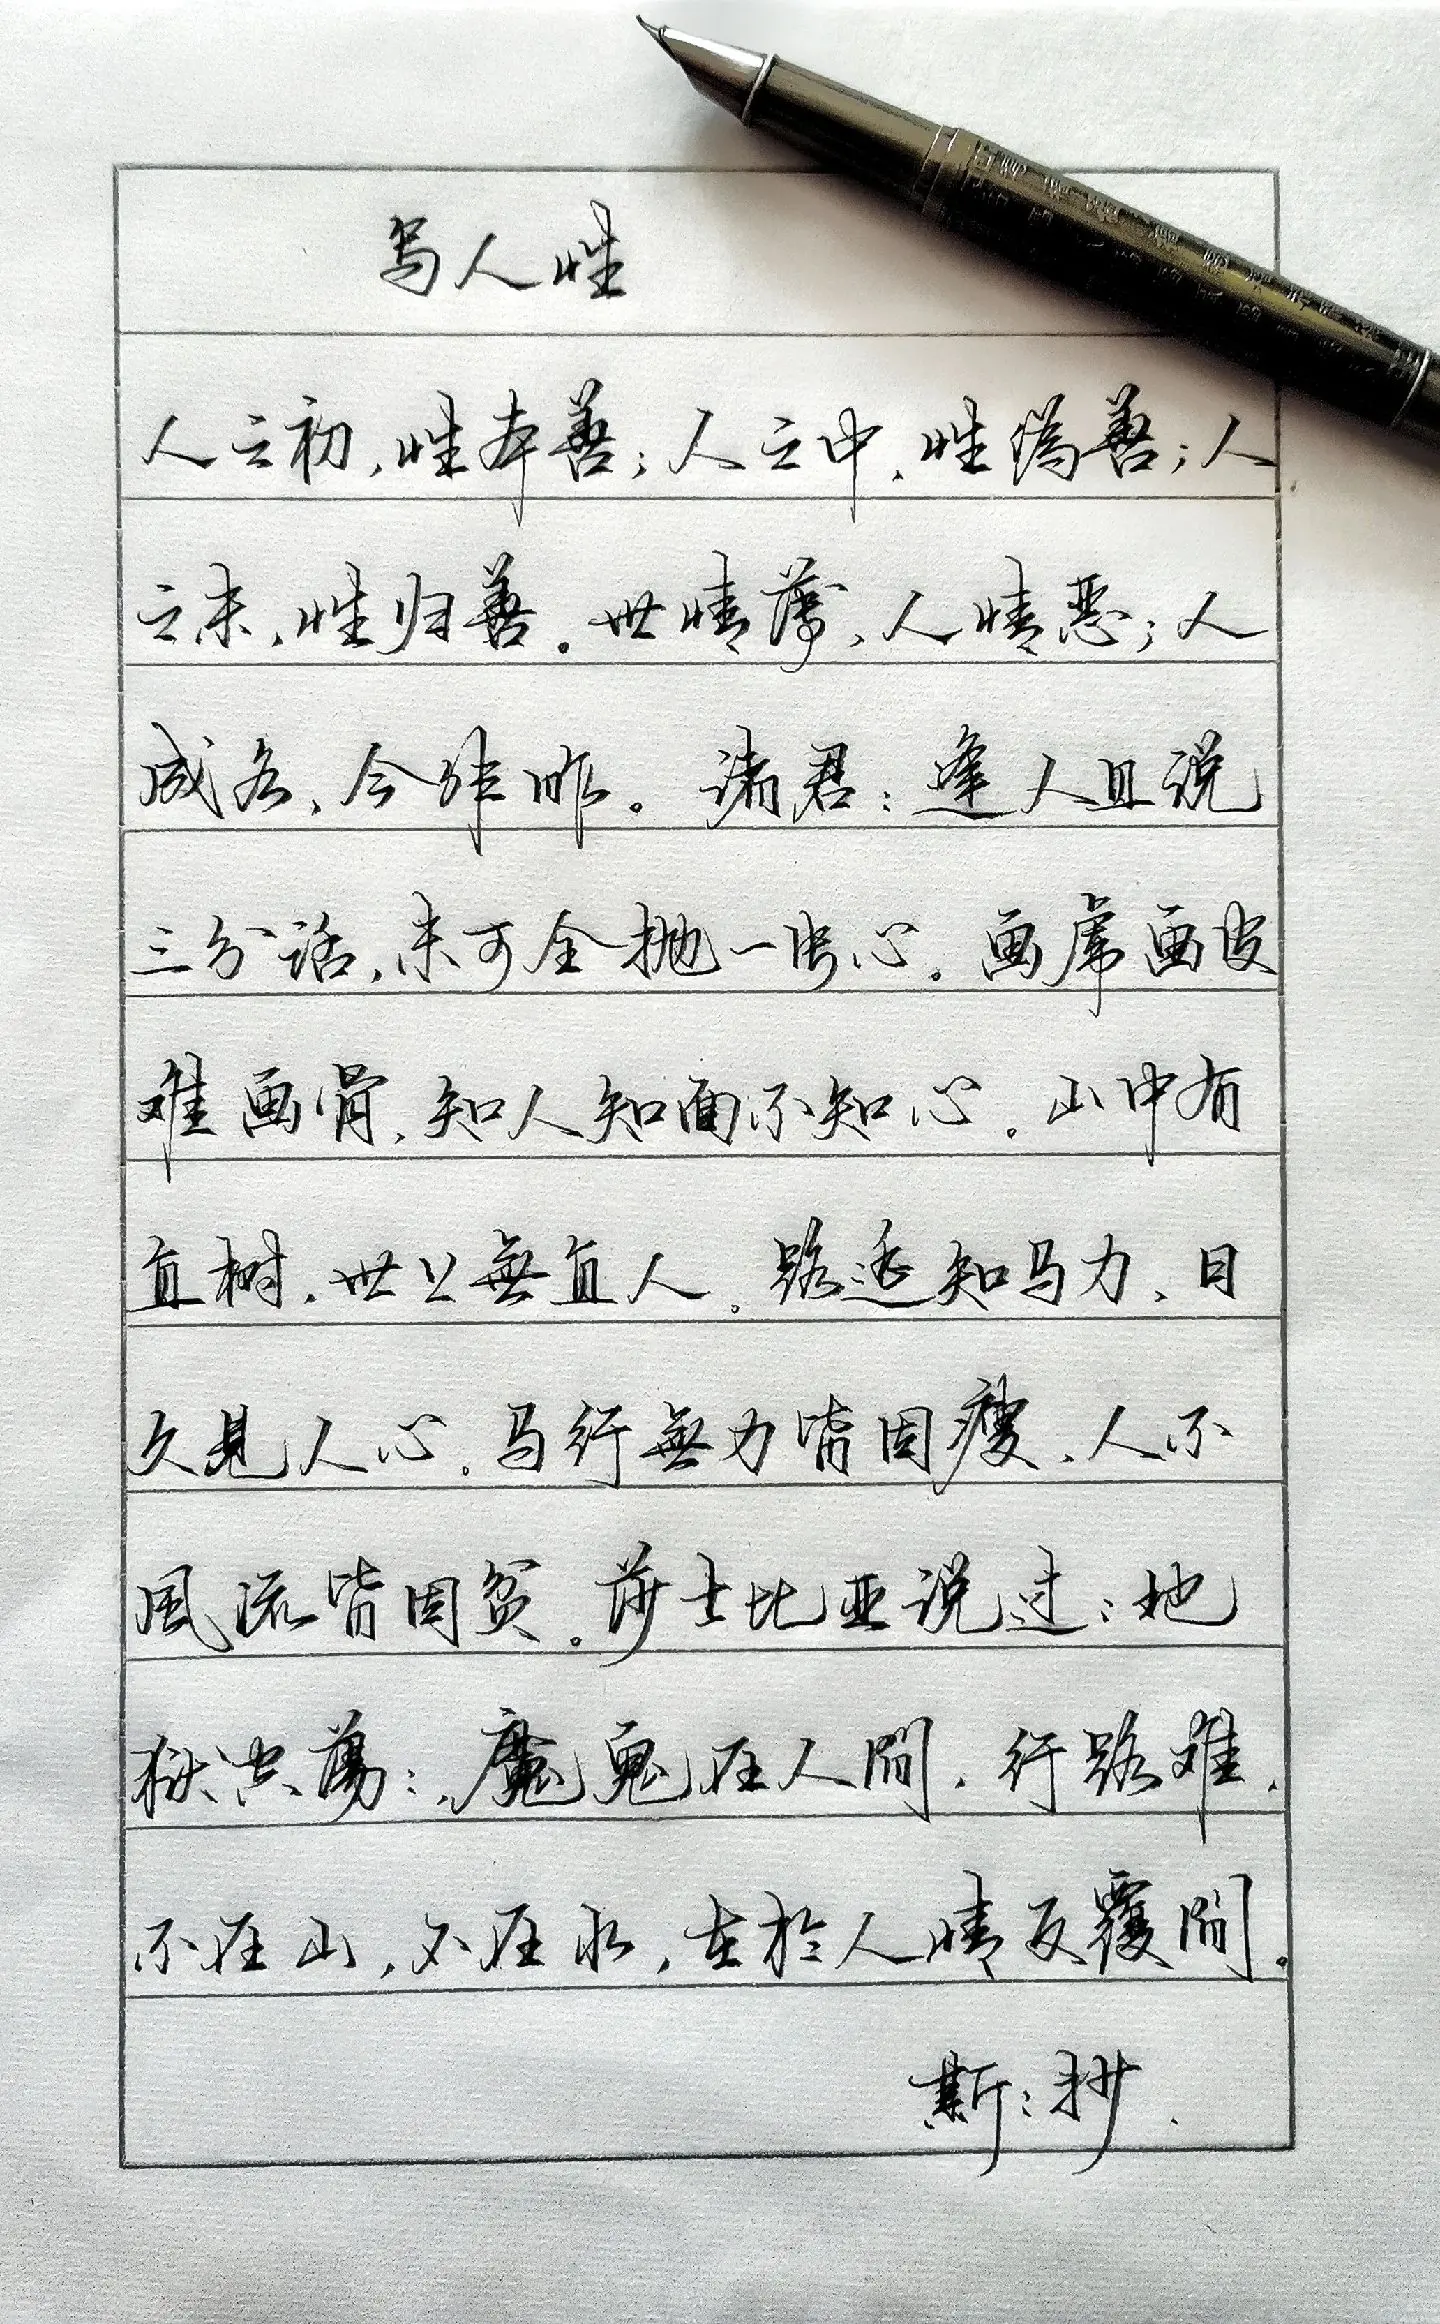 写人性
人之初，性本善；人之中，性伪善；人
之末，性归善。世情薄，人情恶；人
成各，今非昨。诸君：逢人且说
三分话，未可全抛一片心。画虎画皮
难画骨，知人知面不知心。山中有
直树，世上無直人。路遥知马力，日
久见人心。马行無力皆因瘦，人不
風流皆因贫。莎士比亚说过：地
狱空荡荡，魔鬼在人間。行路难，
不在山，不在水，在於人情反覆間。
斯：抄